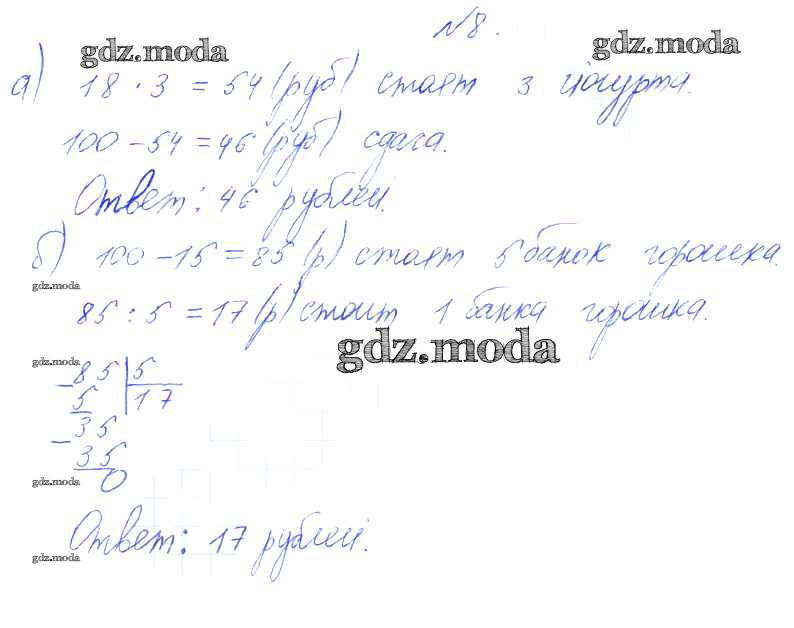 №8.
gdz.moda gdz.moda
а) 18 · 3 = 54 (руб) стоят 3 йогурта.
100 - 54 = 46 (руб) сдача.
Ответ: 46 рублей.
б) 100 - 15 = 85 (р) стоят 5 банок горошка.
gdz.moda
85 : 5 = 17 (р) стоит 1 банка горошка.
gdz.moda
gdz.moda
- 85 | 5
5 | 17
- 35
35
gdz.moda
0
Ответ: 17 рублей.
gdz.moda